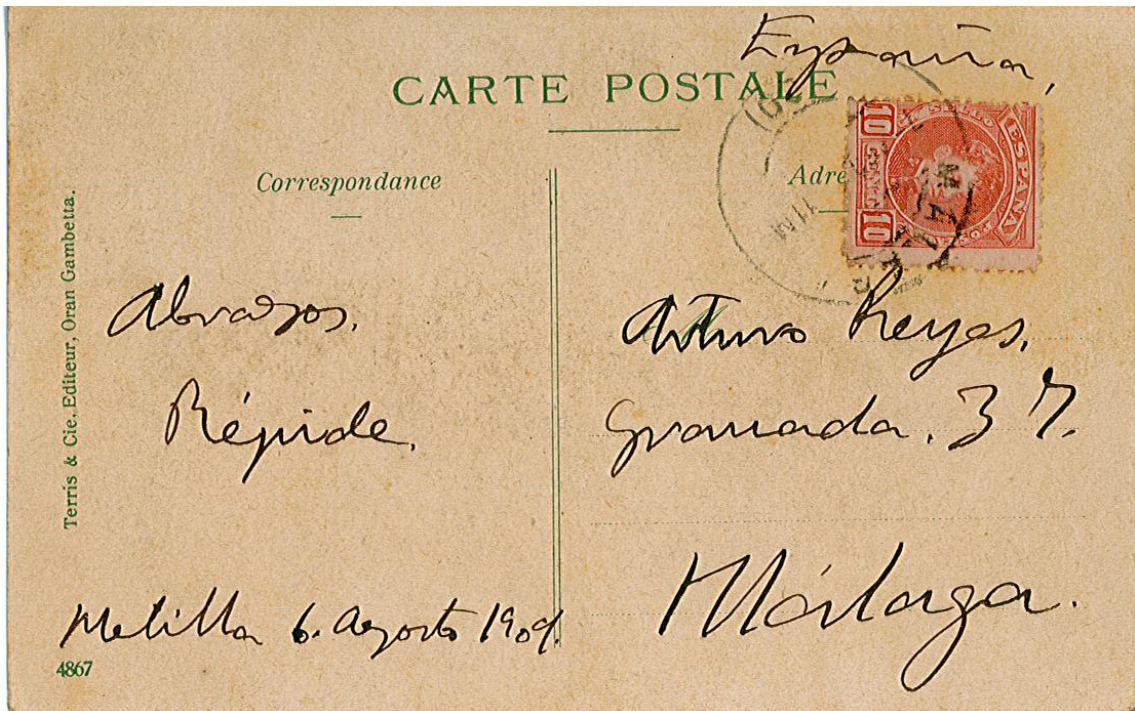 España,
CARTE POSTALE
Correspondance
Adre
10 10
ESPAÑA
Terris & Cie, Editeur, Oran Gambetta.
Abrazos.
Répide.
Melilla 6. Agosto 1909.
4867
Arturo Reyes.
Granada. 37.
Málaga.